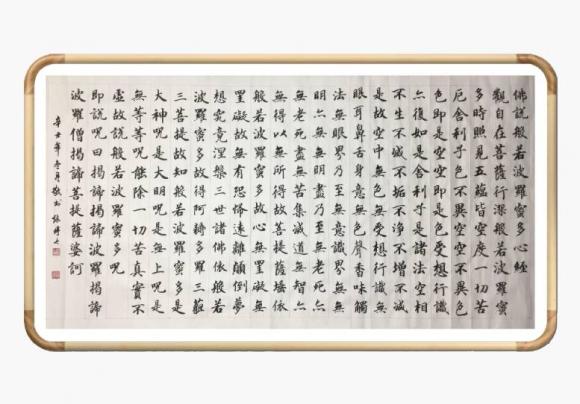 佛說般若波羅蜜多心經
觀自在菩薩行深般若波羅蜜
多時照見五蘊皆空度一切苦
厄舍利子色不異空空不異色
色即是空空即是色受想行識
亦復如是舍利子是諸法空相
不生不滅不垢不淨不增不減
是故空中無色無受想行識無
眼耳鼻舌身意無色聲香味觸
法無眼界乃至無意識界無無
明亦無無明盡乃至無老死亦
無老死盡無苦集滅道無智亦
無得以無所得故菩提薩埵依
般若波羅蜜多故心無罣礙無
罣礙故無有恐怖遠離顛倒夢
想究竟涅槃三世諸佛依般若
波羅蜜多故得阿耨多羅三藐
三菩提故知般若波羅蜜多是
大神呪是大明呪是無上呪是
無等等呪能除一切苦真實不
虛故說般若波羅蜜多呪
即說呪曰揭諦揭諦波羅揭諦
波羅僧揭諦菩提薩婆訶
辛丑年冬月敬書